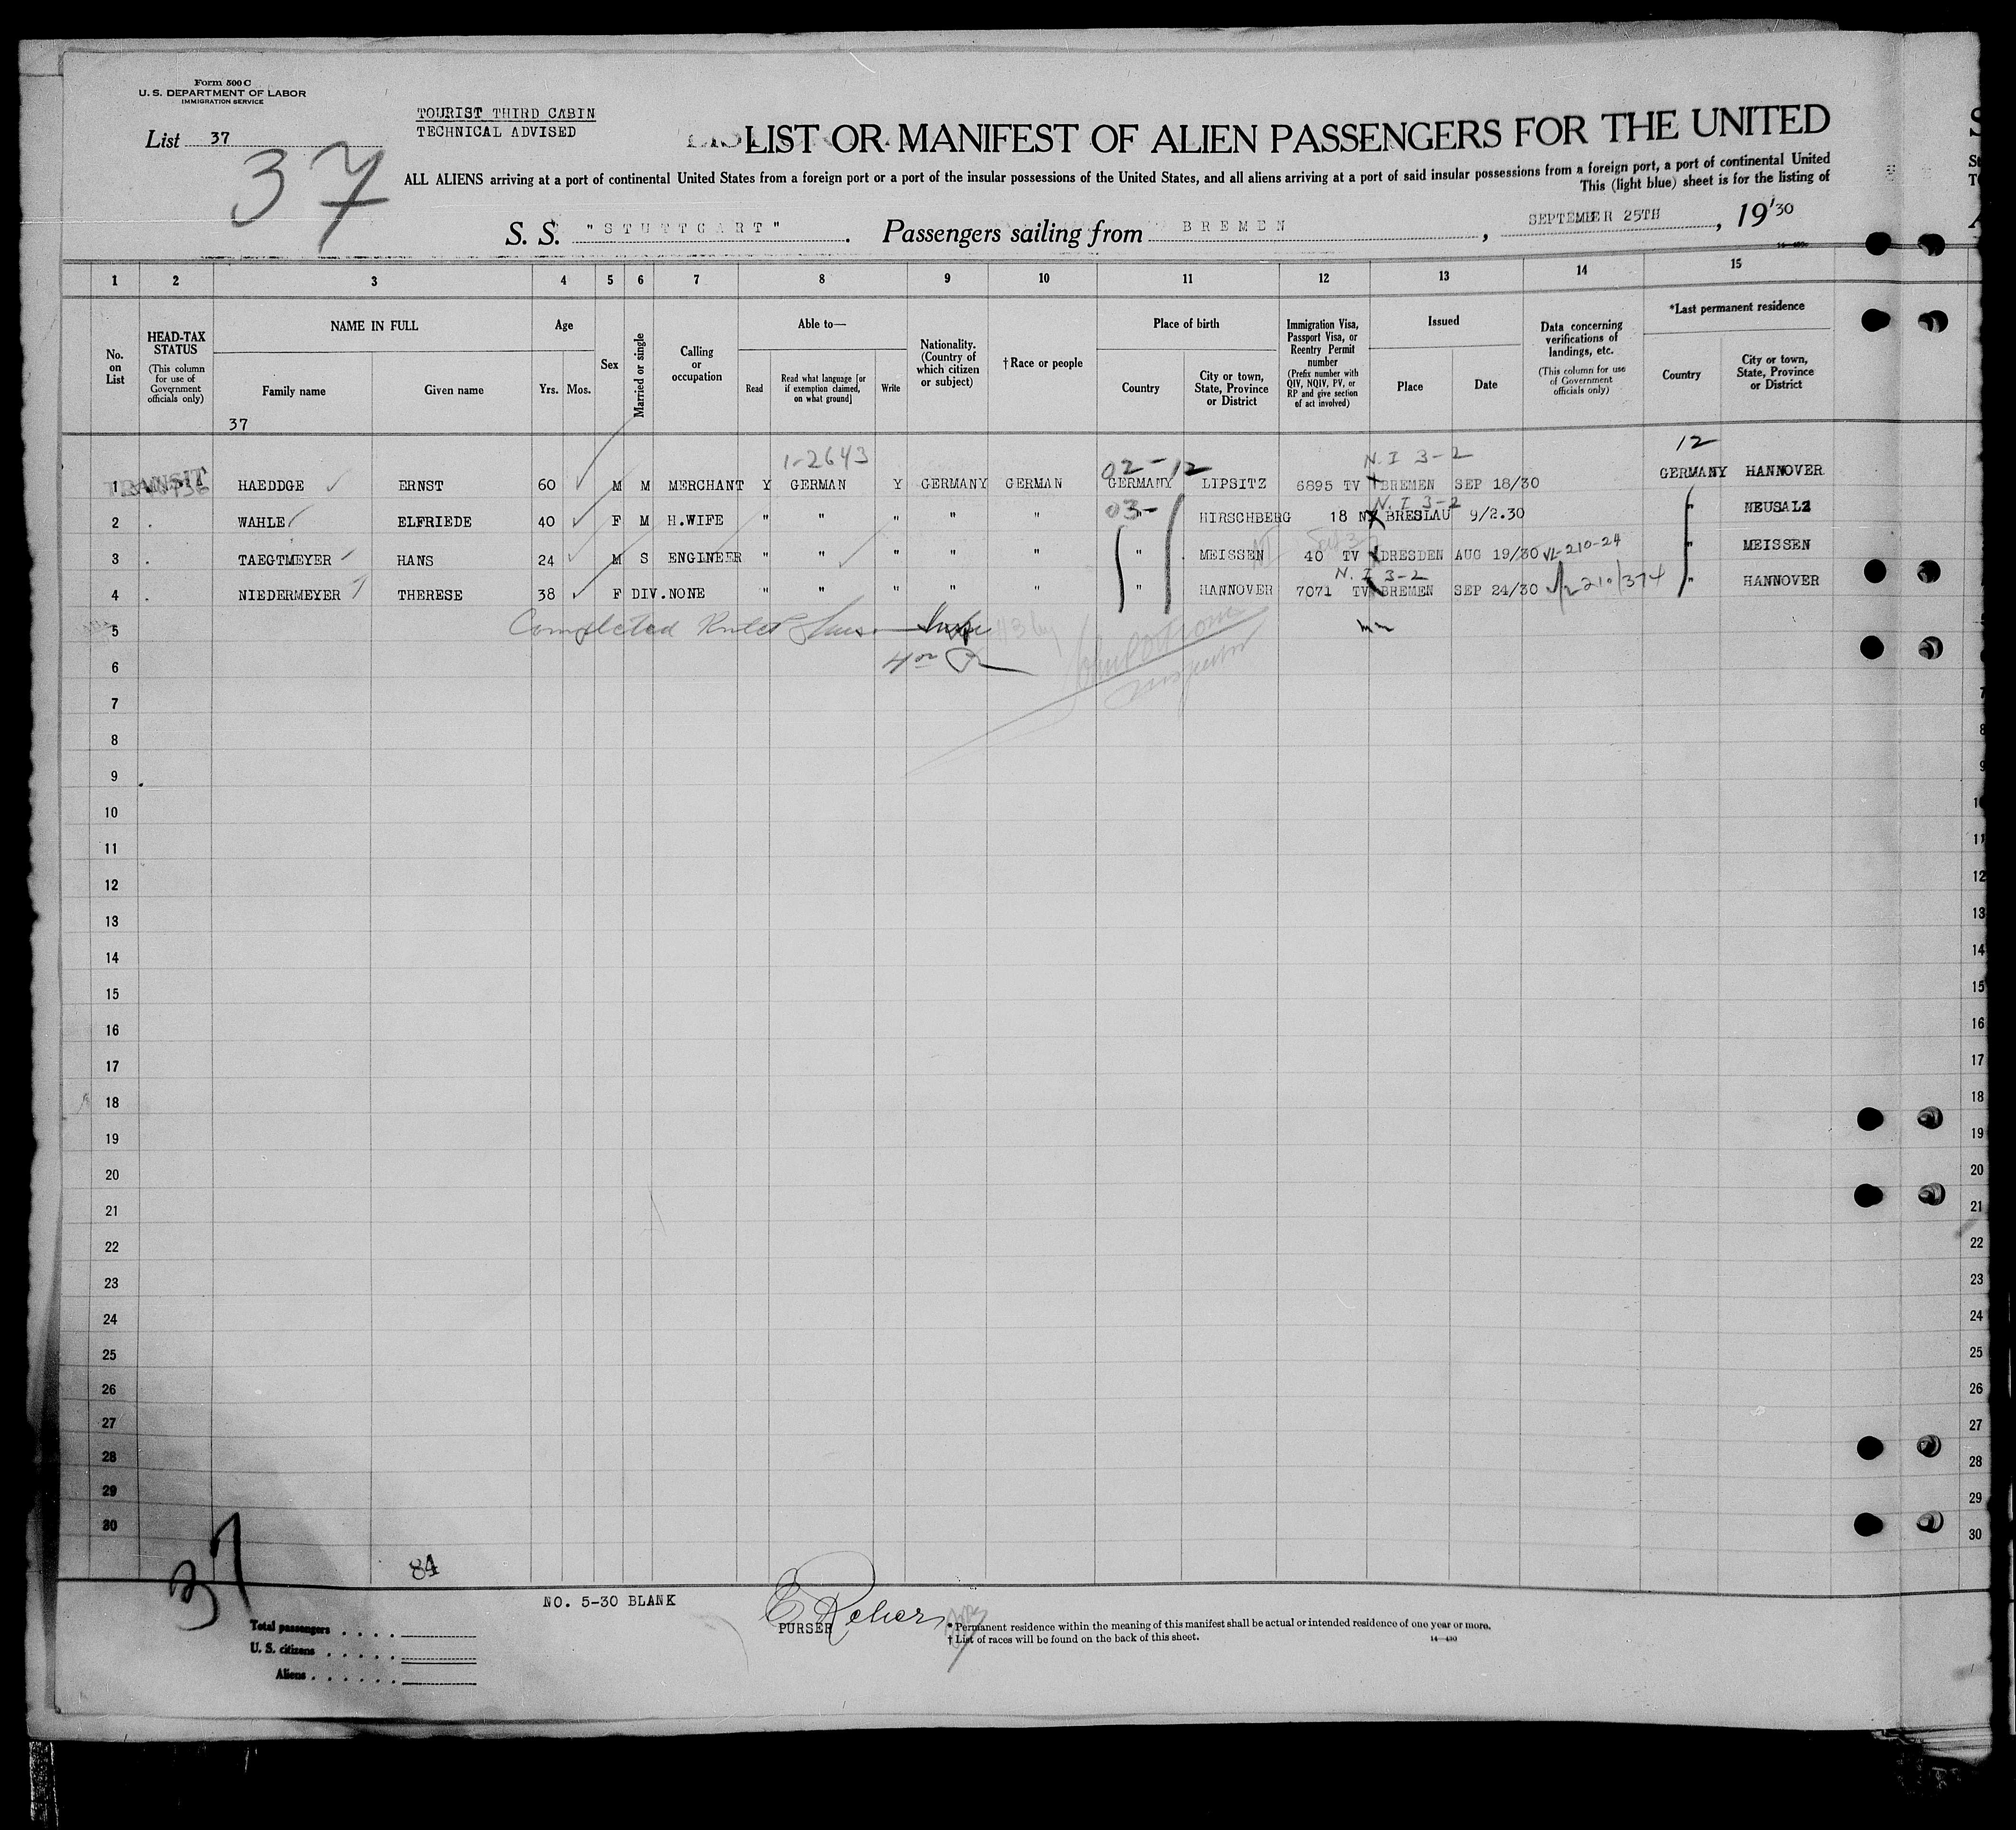 Form 500 C
U. S. DEPARTMENT OF LABOR
IMMIGRATION SERVICE
List 37
37
TOURIST THIRD CABIN
TECHNICAL ADVISED
LIST OR MANIFEST OF ALIEN PASSENGERS FOR THE UNITED
ALL ALIENS arriving at a port of continental United States from a foreign port or a port of the insular possessions of the United States, and all aliens arriving at a port of said insular possessions from a foreign port, a port of continental United
This (light blue) sheet is for the listing of
S. S. "STUTTGART". Passengers sailing from BREMEN, SEPTEMBER 25TH, 19'30
1 2 3 4 5 6 7 8 9 10 11 12 13 14 15
No. on List
HEAD-TAX STATUS (This column for use of Government officials only)
NAME IN FULL
Family name
Given name
Age
Yrs. Mos.
Sex
Married or single
Calling or occupation
Able to—
Read
Read what language [or if exemption claimed, on what ground]
Write
Nationality. (Country of which citizen or subject)
†Race or people
Place of birth
Country
City or town, State, Province or District
Immigration Visa, Passport Visa, or Reentry Permit number (Prefix number with QIV, NQIV, PV, or RP and give section of act involved)
Issued
Place
Date
Data concerning verifications of landings, etc. (This column for use of Government officials only)
*Last permanent residence
Country
City or town, State, Province or District
37
1-2643 02-12 N.I 3-2 12
TRANSIT
1 HAEDDGE ERNST 60 M M MERCHANT Y GERMAN Y GERMANY GERMAN GERMANY LIPSITZ 6895 TV BREMEN SEP 18/30 GERMANY HANNOVER
03- N.I 3-2
2 WAHLE ELFRIEDE 40 F M H.WIFE " " " " " " HIRSCHBERG 18 BRESLAU 9/2.30 " NEUSALZ
3 TAEGTMEYER HANS 24 M S ENGINEER " " " " " " MEISSEN 40 TV DRESDEN AUG 19/30 VL-210-24 " MEISSEN
N.I 3-2
4 NIEDERMEYER THERESE 38 F DIV. NONE " " " " " " HANNOVER 7071 TV BREMEN SEP 24/30 210/374 " HANNOVER
5 Completed
6
7
8
9
10
11
12
13
14
15
16
17
18
19
20
21
22
23
24
25
26
27
28
29
30
37
84
NO. 5-30 BLANK
PURSER
Total passengers
U. S. citizens
Aliens
* Permanent residence within the meaning of this manifest shall be actual or intended residence of one year or more.
† List of races will be found on the back of this sheet.
14—430